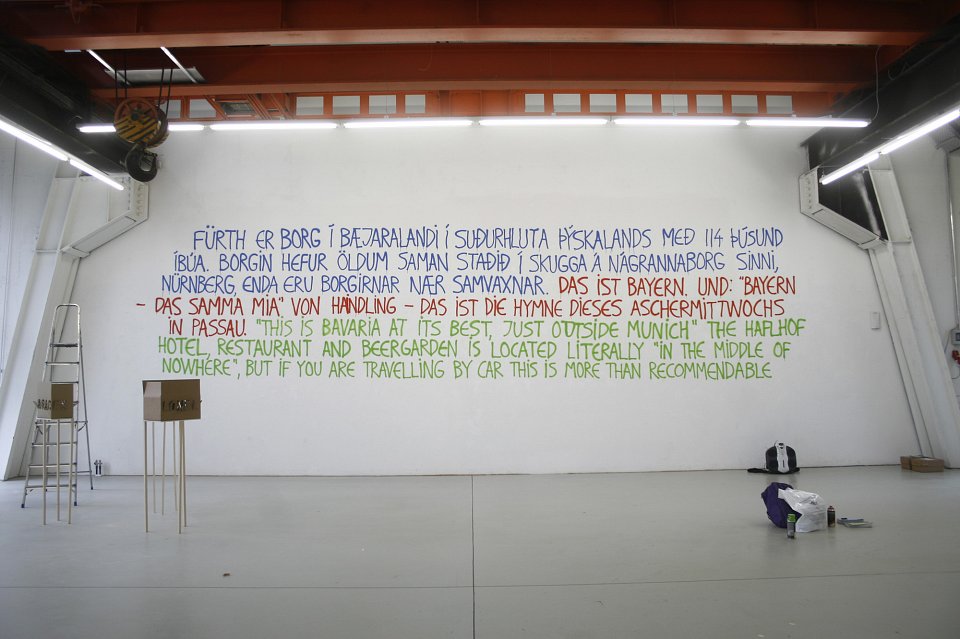 FÜRTH ER BORG Í BÆJARALANDI Í SUÐURHLUTA ÞÝSKALANDS MEÐ 114 ÞÚSUND
ÍBÚA. BORGIN HEFUR ÖLDUM SAMAN STAÐIÐ Í SKUGGA Á NÁGRANNABORG SINNI,
NÜRNBERG, ENDA ERU BORGIRNAR NÆR SAMVAXNAR. DAS IST BAYERN. UND: "BAYERN
- DAS SAMMA MIA" VON HAINDLING - DAS IST DIE HYMNE DIESES ASCHERMITTWOCHS
IN PASSAU. "THIS IS BAVARIA AT ITS BEST, JUST OUTSIDE MUNICH" THE HAFLHOF
HOTEL, RESTAURANT AND BEERGARDEN IS LOCATED LITERALLY "IN THE MIDDLE OF
NOWHERE", BUT IF YOU ARE TRAVELLING BY CAR THIS IS MORE THAN RECOMMENDABLE